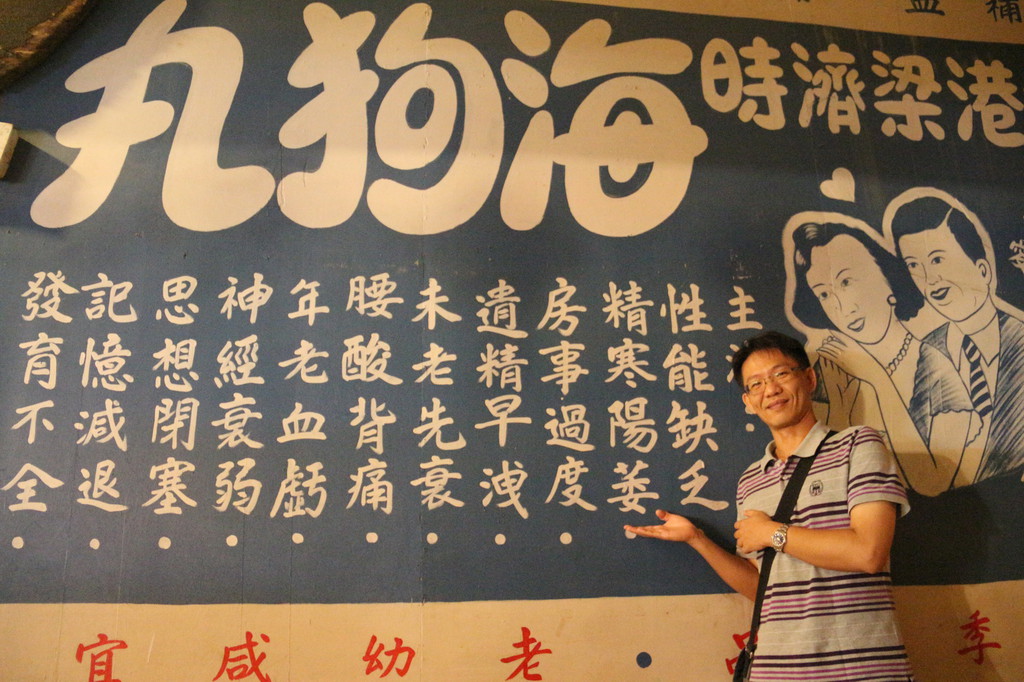 港梁濟時
海狗丸
主
性能缺乏・
精寒陽萎・
房事過度・
遺精早洩・
未老先衰・
腰酸背痛・
年老血虧・
神經衰弱・
思想閉塞・
記憶減退・
發育不全・
季
・老幼咸宜